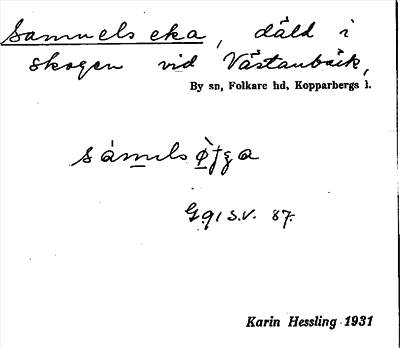 Samuels eka, däld i
skogen vid Västanbäck,
By sn, Folkare hd, Kopparbergs l.
G.91 S.V. 87.
Karin Hessling 1931